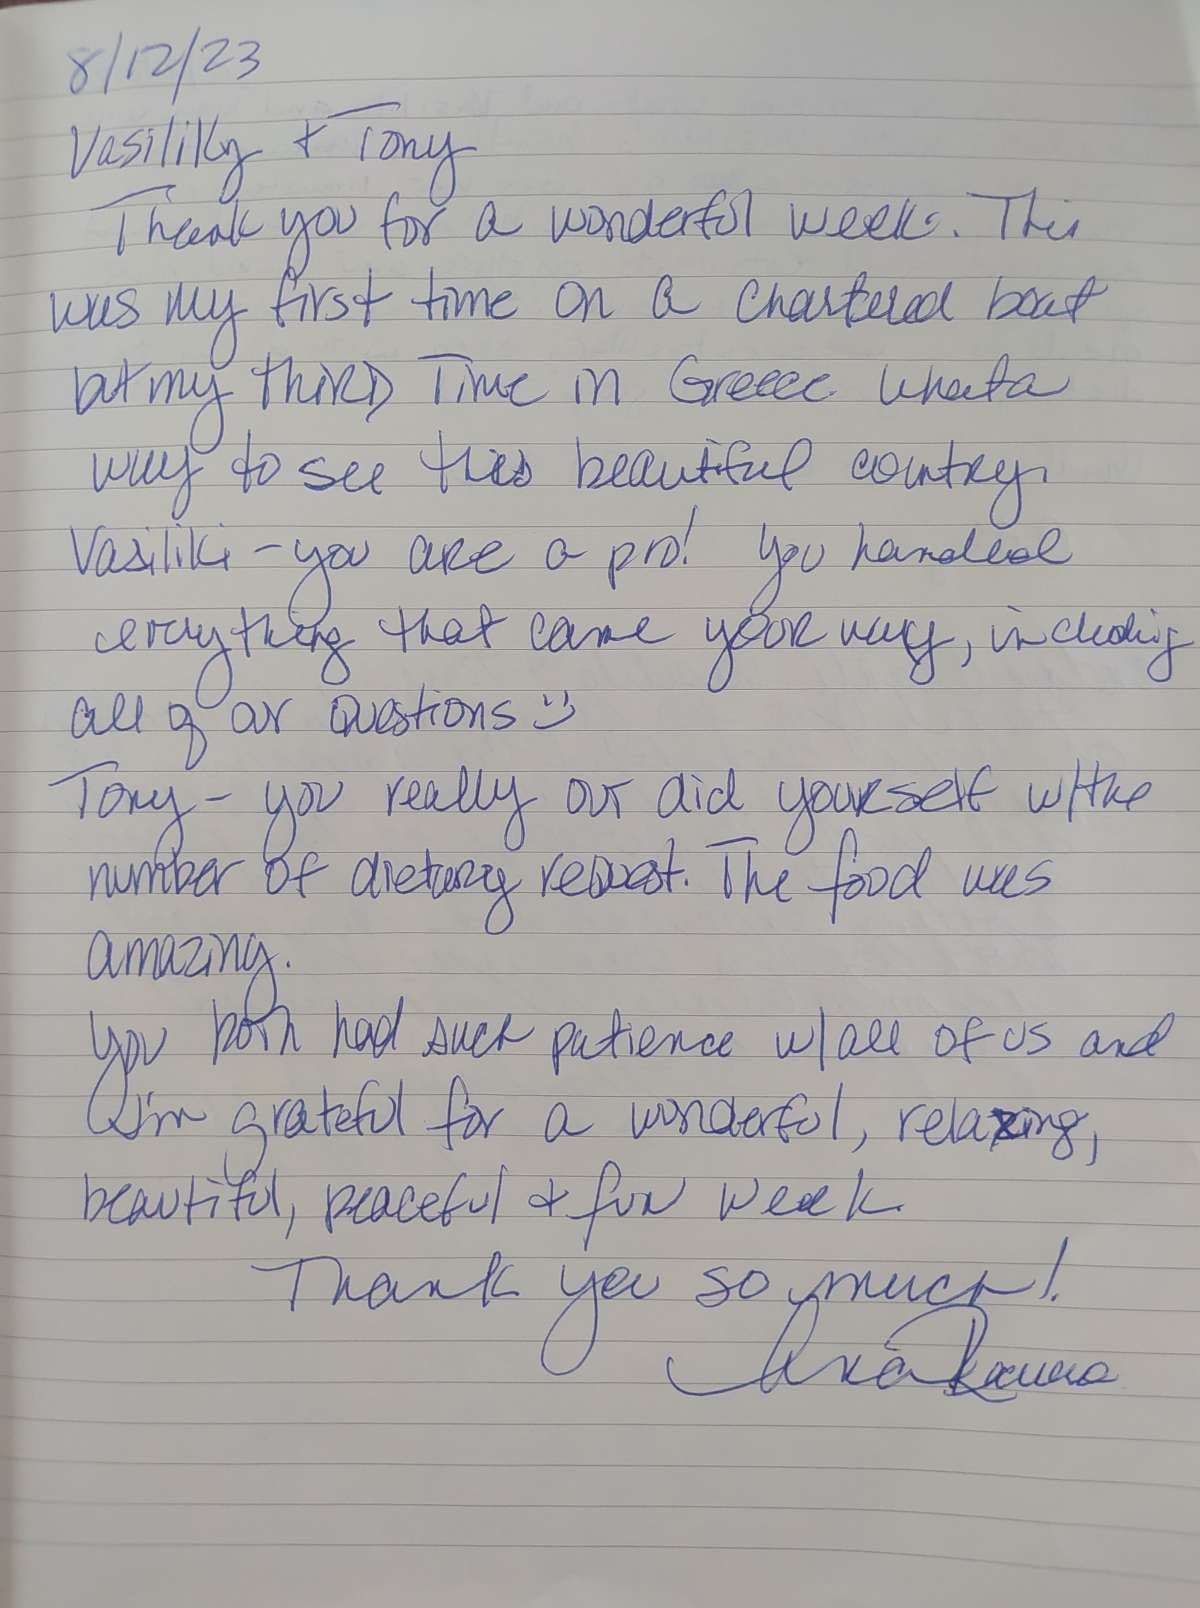 8/12/23
Vasiliky + Tony
Thank you for a wonderful week. This
was my first time on a chartered boat
but my third Time in Greece what a
way to see this beautiful country.
Vasiliki - you are a pro! You handled
everything that came your way, including
all of our questions :)
Tony - you really out did yourself w/the
number of dietary request. The food was
amazing.
You both had such patience w/all of us and
I'm grateful for a wonderful, relaxing,
beautiful, peaceful + fun week.
Thank you so much!